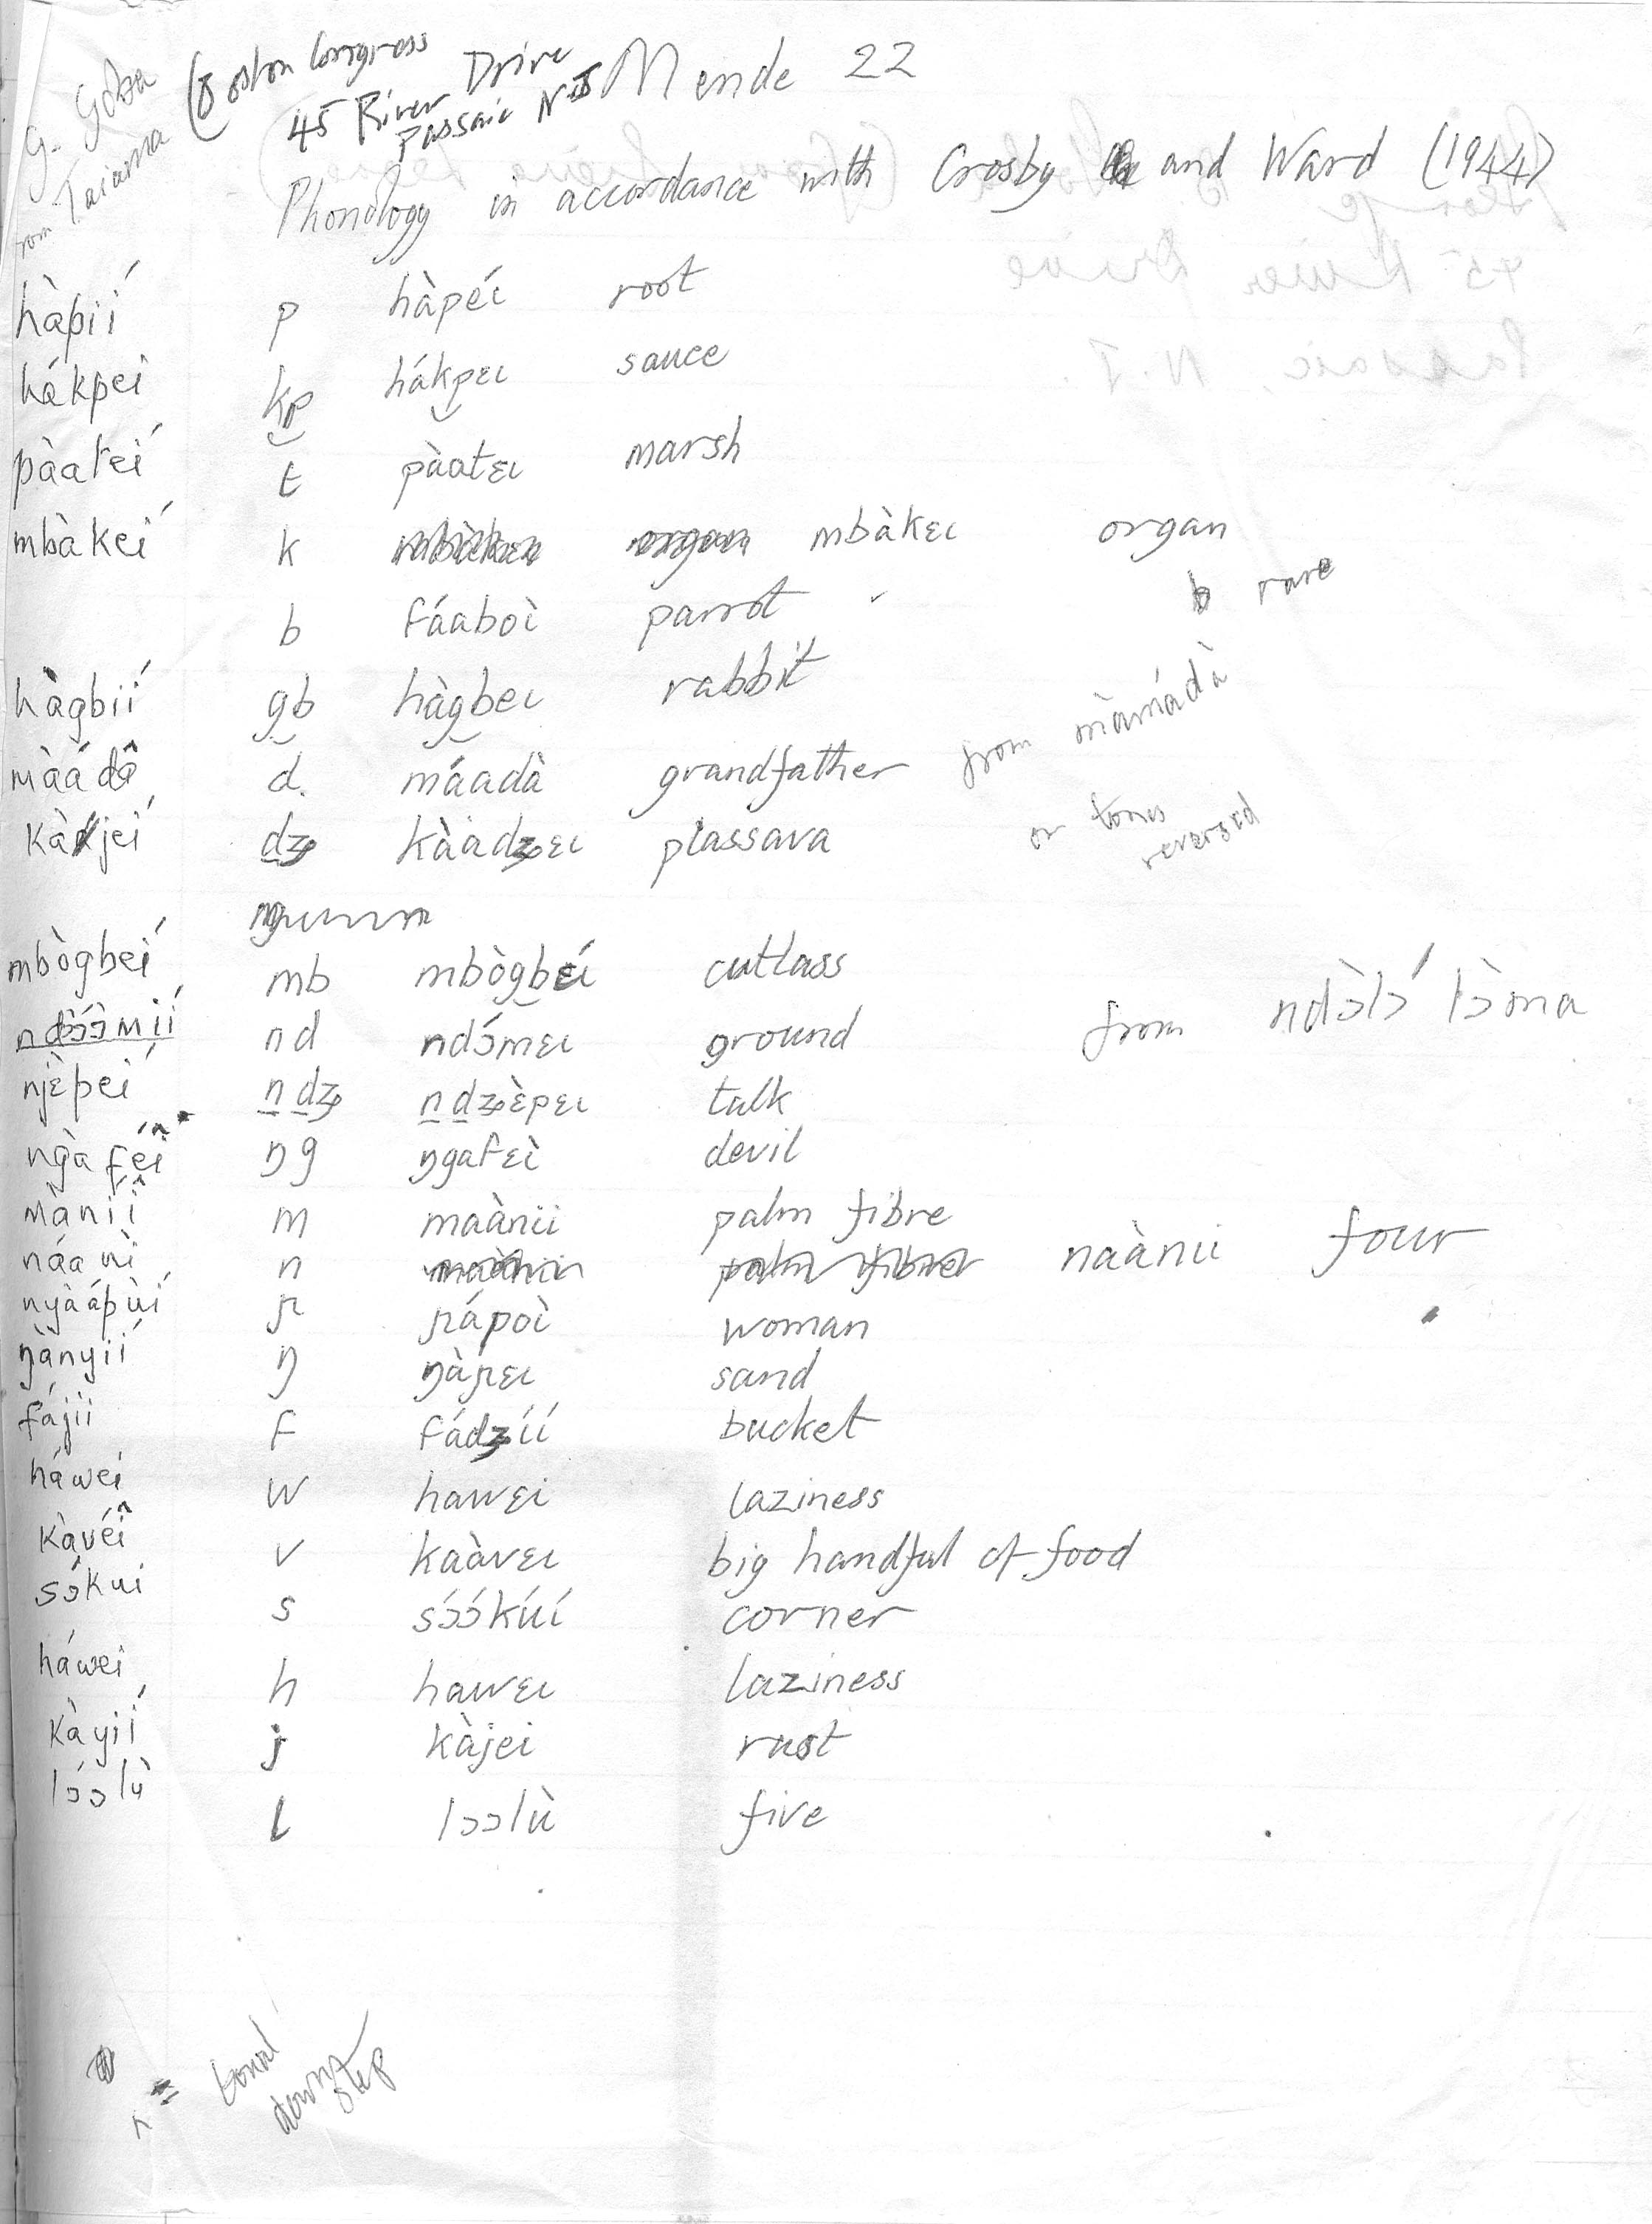 G. Goba (Boston Congress
from Taiama
45 River Drive
Passaic N.J.
Mende 22
Phonology in accordance with Crosby and Ward (1944)
hàpíí p hàpéɩ root
hákpei kp hákpɛɩ sauce
pàateí t pàatɛɩ marsh
mbàkeí k mbàkɛɩ organ
b fáaboì parrot b rare
hàgbií gb hàgbeɩ rabbit
màádâ d máadà grandfather from màmádà
or tones reversed
kàjeí dʒ kàadʒɛɩ piassava
mbògbeí mb mbògbɛ́ɩ cutlass
ndɔ́ɔ̀mií nd ndɔ́mɛɩ ground from ndɔ̀lɔ́ lɔ̀ma
njɛ̀peí ndʒ ndʒɛ̀pɛɩ talk
ngàféî ŋg ŋgafɛì devil
màníî m maànii palm fibre
náanì n naànii four
nyàápùí ɲ ɲápoì woman
ŋànyií ŋ ŋàɲɛɩ sand
fájii f fádʒíí bucket
háwei w hawɛi laziness
kàvéî v kaàvɛɩ big handful of food
sɔ́kui s sɔ́ɔ́kúí corner
háwei h hawɛɩ laziness
kàyií j kàjei rust
lɔ́ɔlù l lɔɔlù five
^ = tonal
downstep